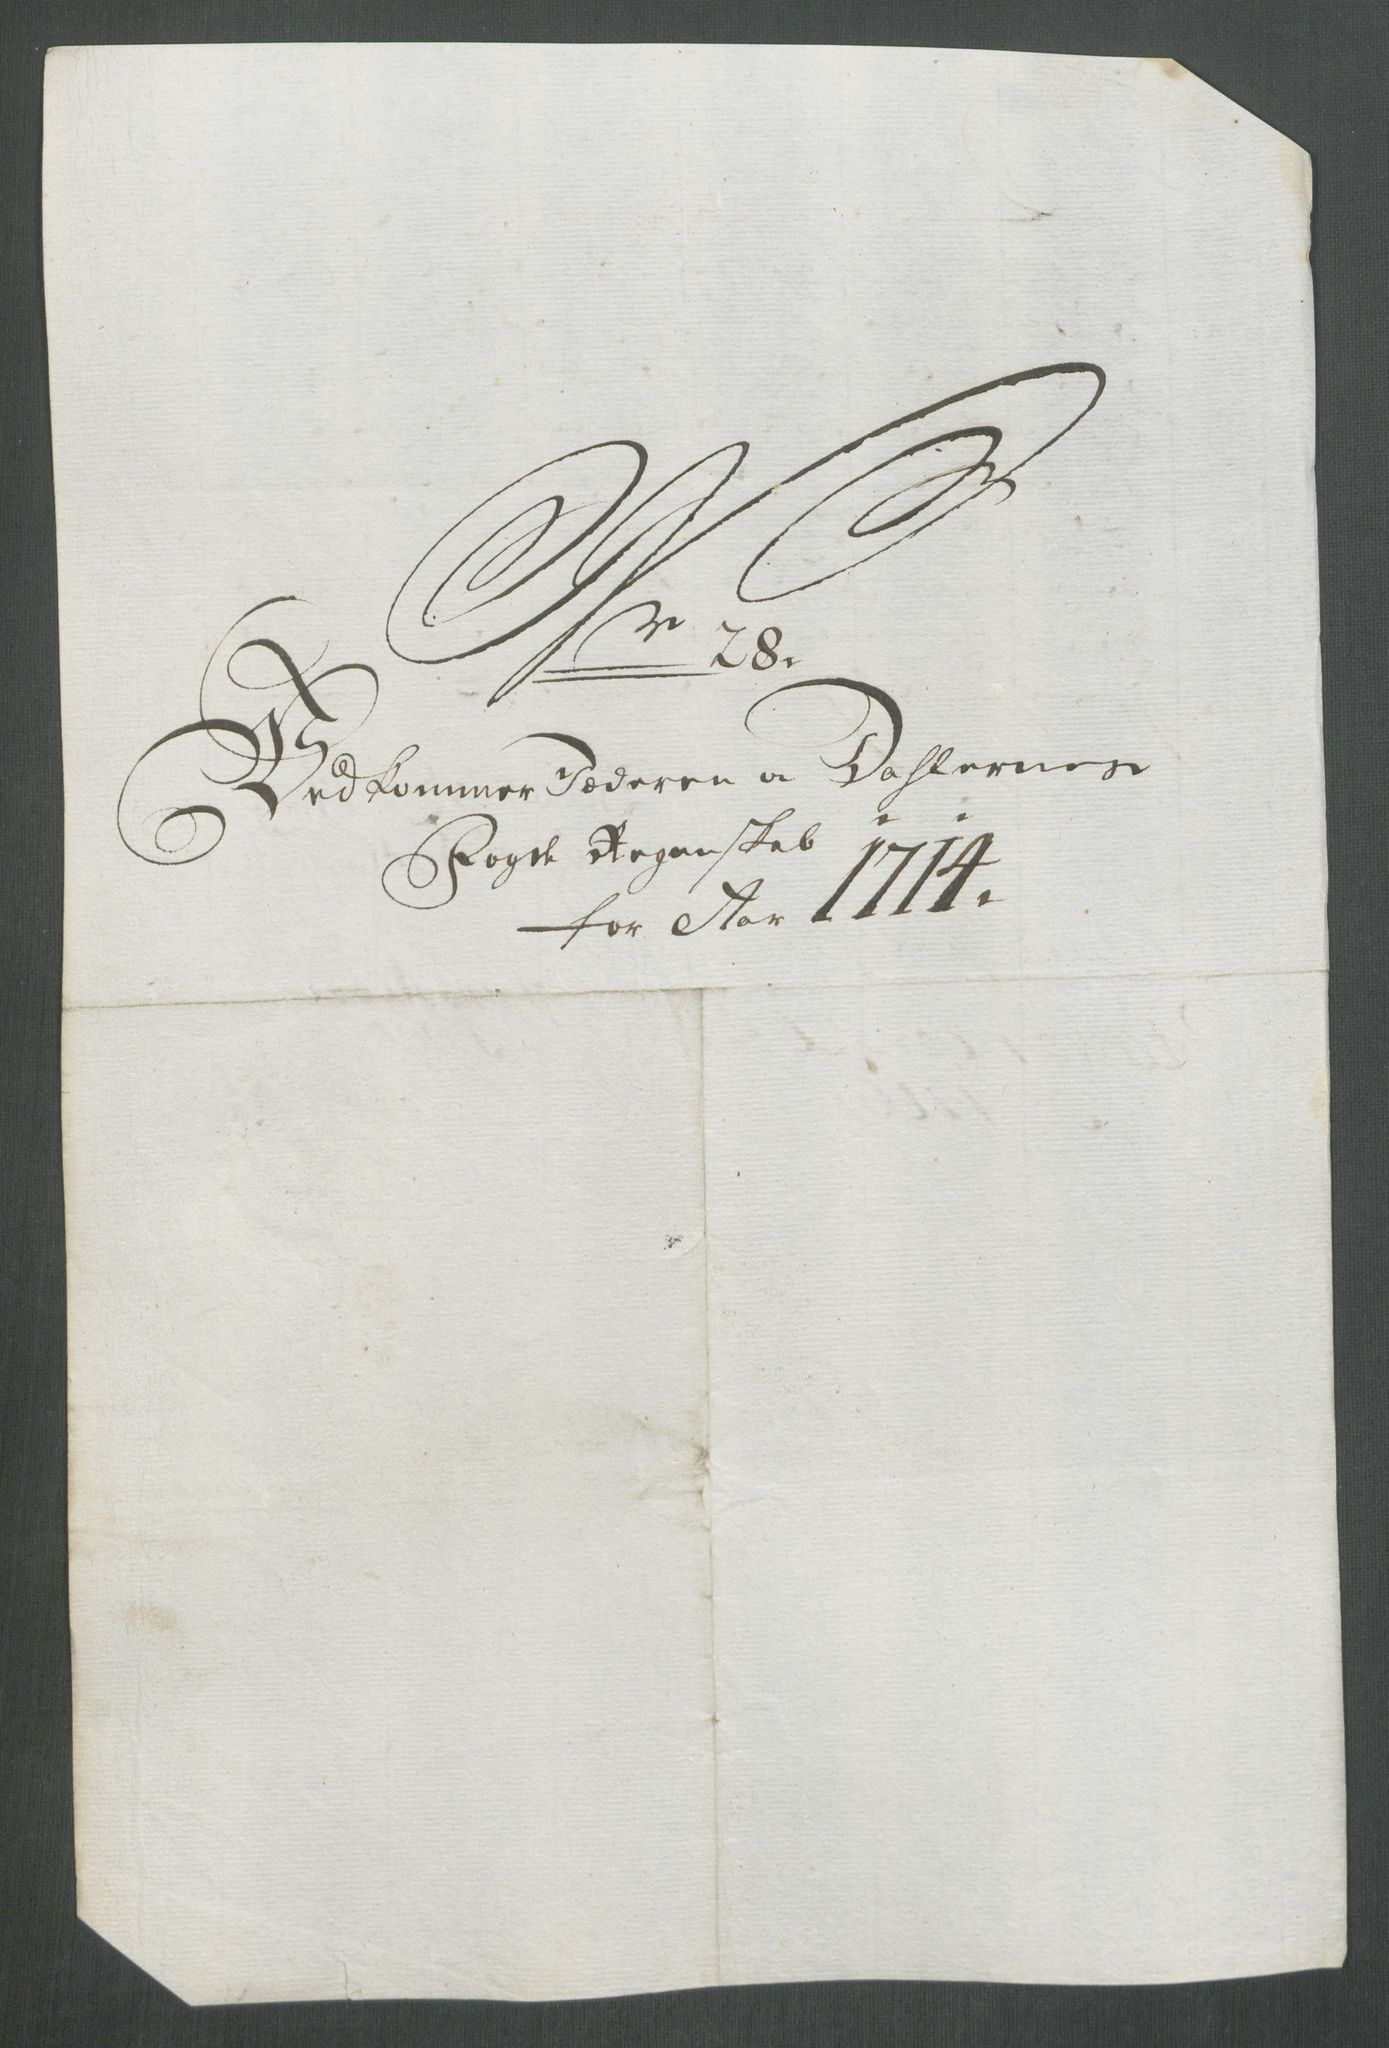 Nr 28.
Vedkommer Jæderen oc Dahlernes
Fogde Regenskab
for Aar 1714.